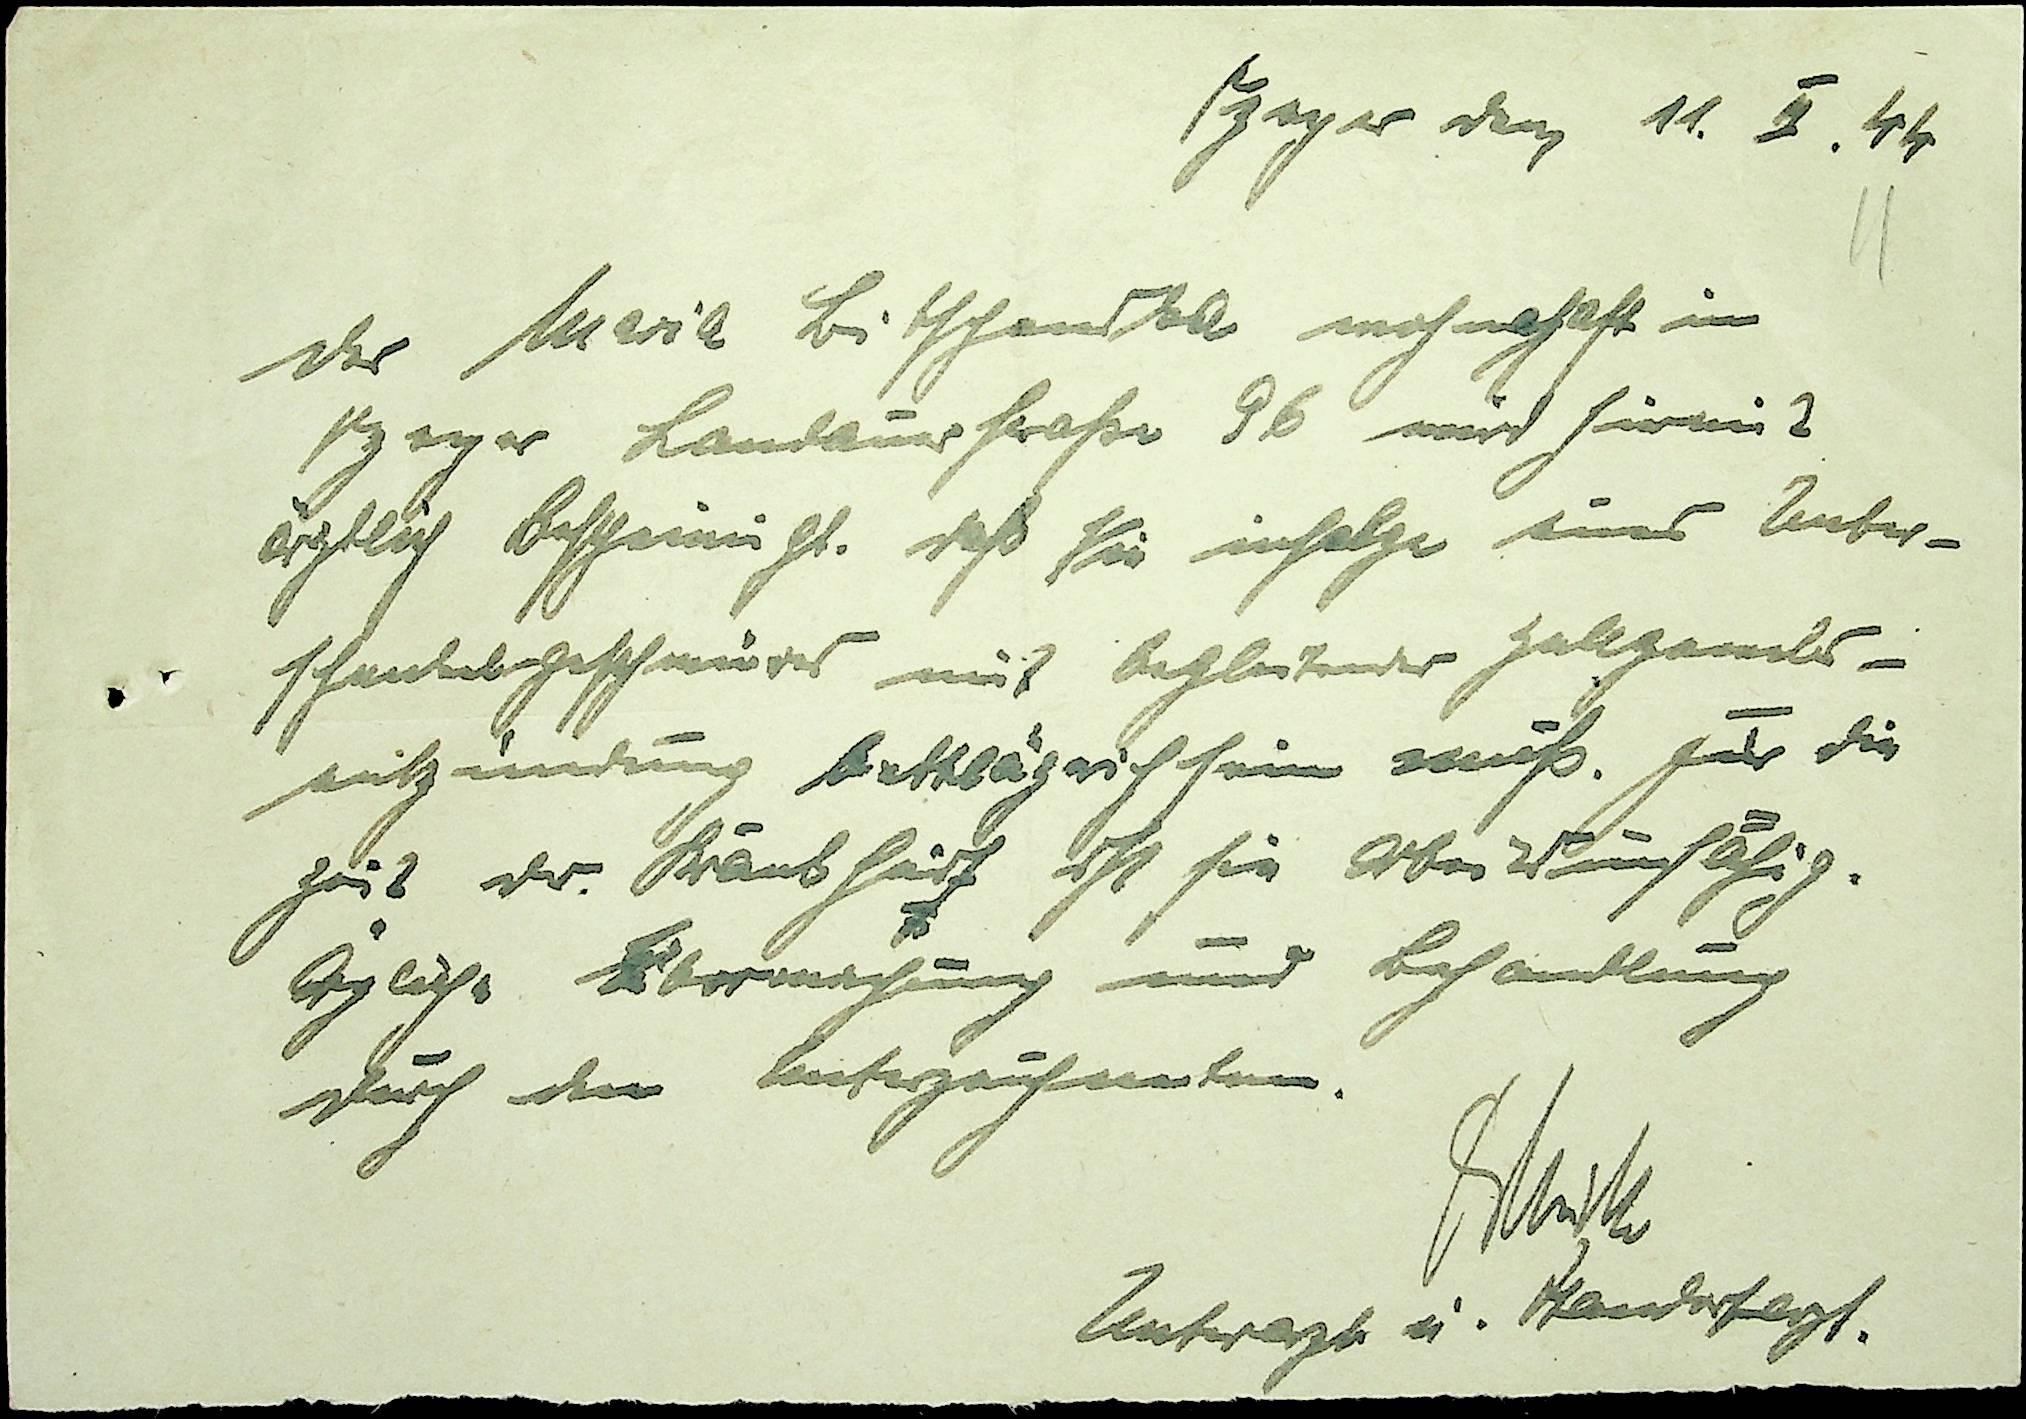 Speyer den 11. II. 44
11
Der Maria Bittschenda wohnhaft in
Speyer Landauerstraße 96 wird hirmit
ärztlich bescheinigt. daß Sie infolge eines Unter-
schenkelgeschwüres mit begleitender Zellgewebs-
entzündung bettlägerich sein muß. Für die
Zeit der Krankheit ist sie Arbeitsunfähig.
Ärzliche Überwachung und Behandlung
durch den Unterzeichneten.
Unterarzt u. Standortarzt.